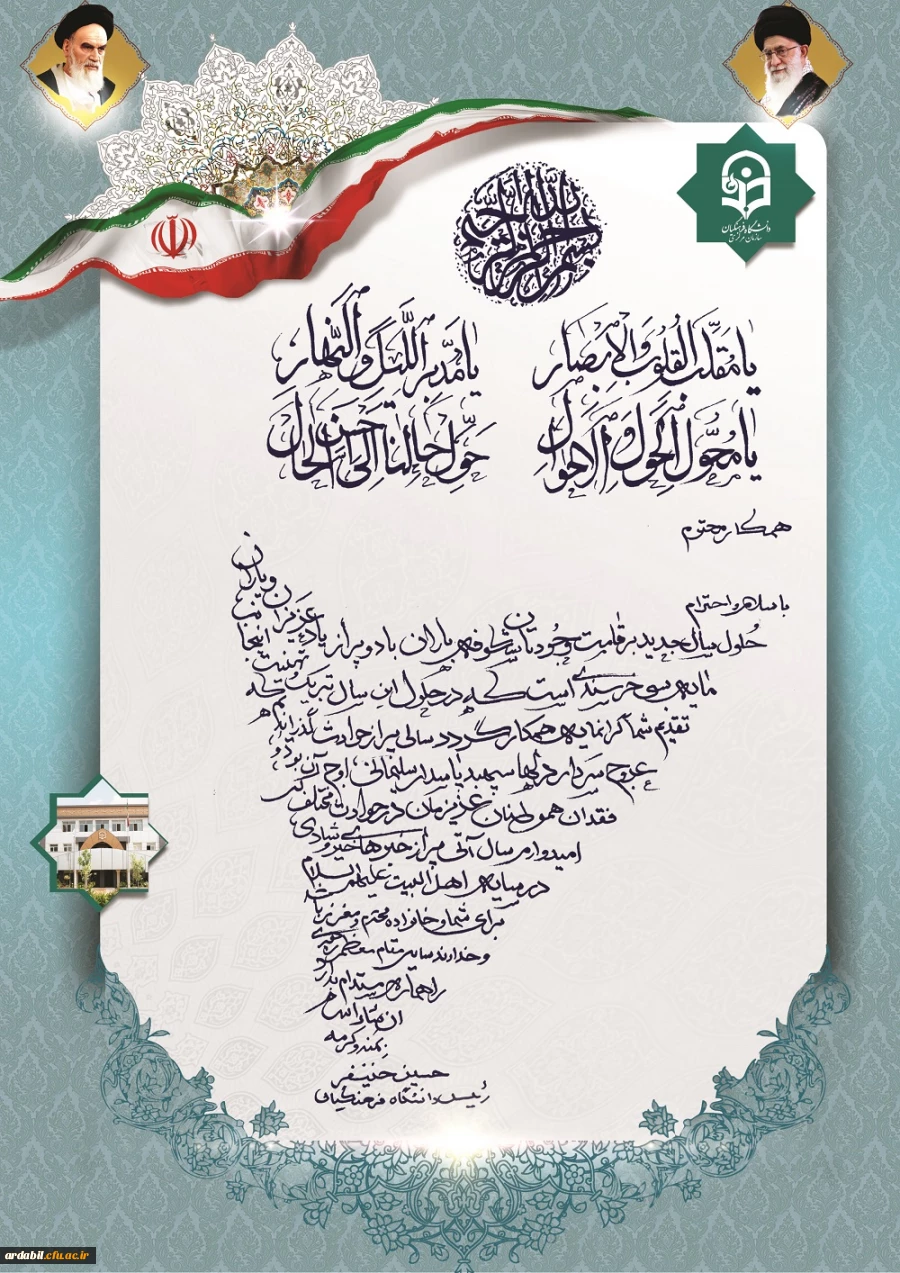 بسم الله الرحمن الرحیم
دانشگاه فرهنگیان
سازمان مرکزی
یا مقلب القلوب والابصار
یا مدبر اللیل والنهار
یا محول الحول والاحوال
حول حالنا الی احسن الحال
همکار محترم
با سلام و احترام
حلول سال جدید بر قامت وجودتان شکوفه باران باد و پر از یاد عزیزان و یاران
مایه‌ی بسی خرسندی است که در حلول این سال تبریک و تهنیت
تقدیم شما گرانمایه‌ی همکار گردد سالی پر از حوادث گذراندیم که
عروج سردار دلها سپهبد پاسدار سلیمانی اوج آن بود و
فقدان هموطنان عزیزمان در حوادث مختلف
امیدوارم سال آتی پر از خبرهای خیر و شادی
در سایه‌ی اهل البیت علیهم السلام
برای شما و خانواده محترم و معزز باشد
و خداوند سایه‌ی مقام معظم رهبری
را هماره مستدام بدارد
ان شاء الله
بمنه و کرمه
حسین خنیفر
رئیس دانشگاه فرهنگیان
ardabil.cfu.ac.ir